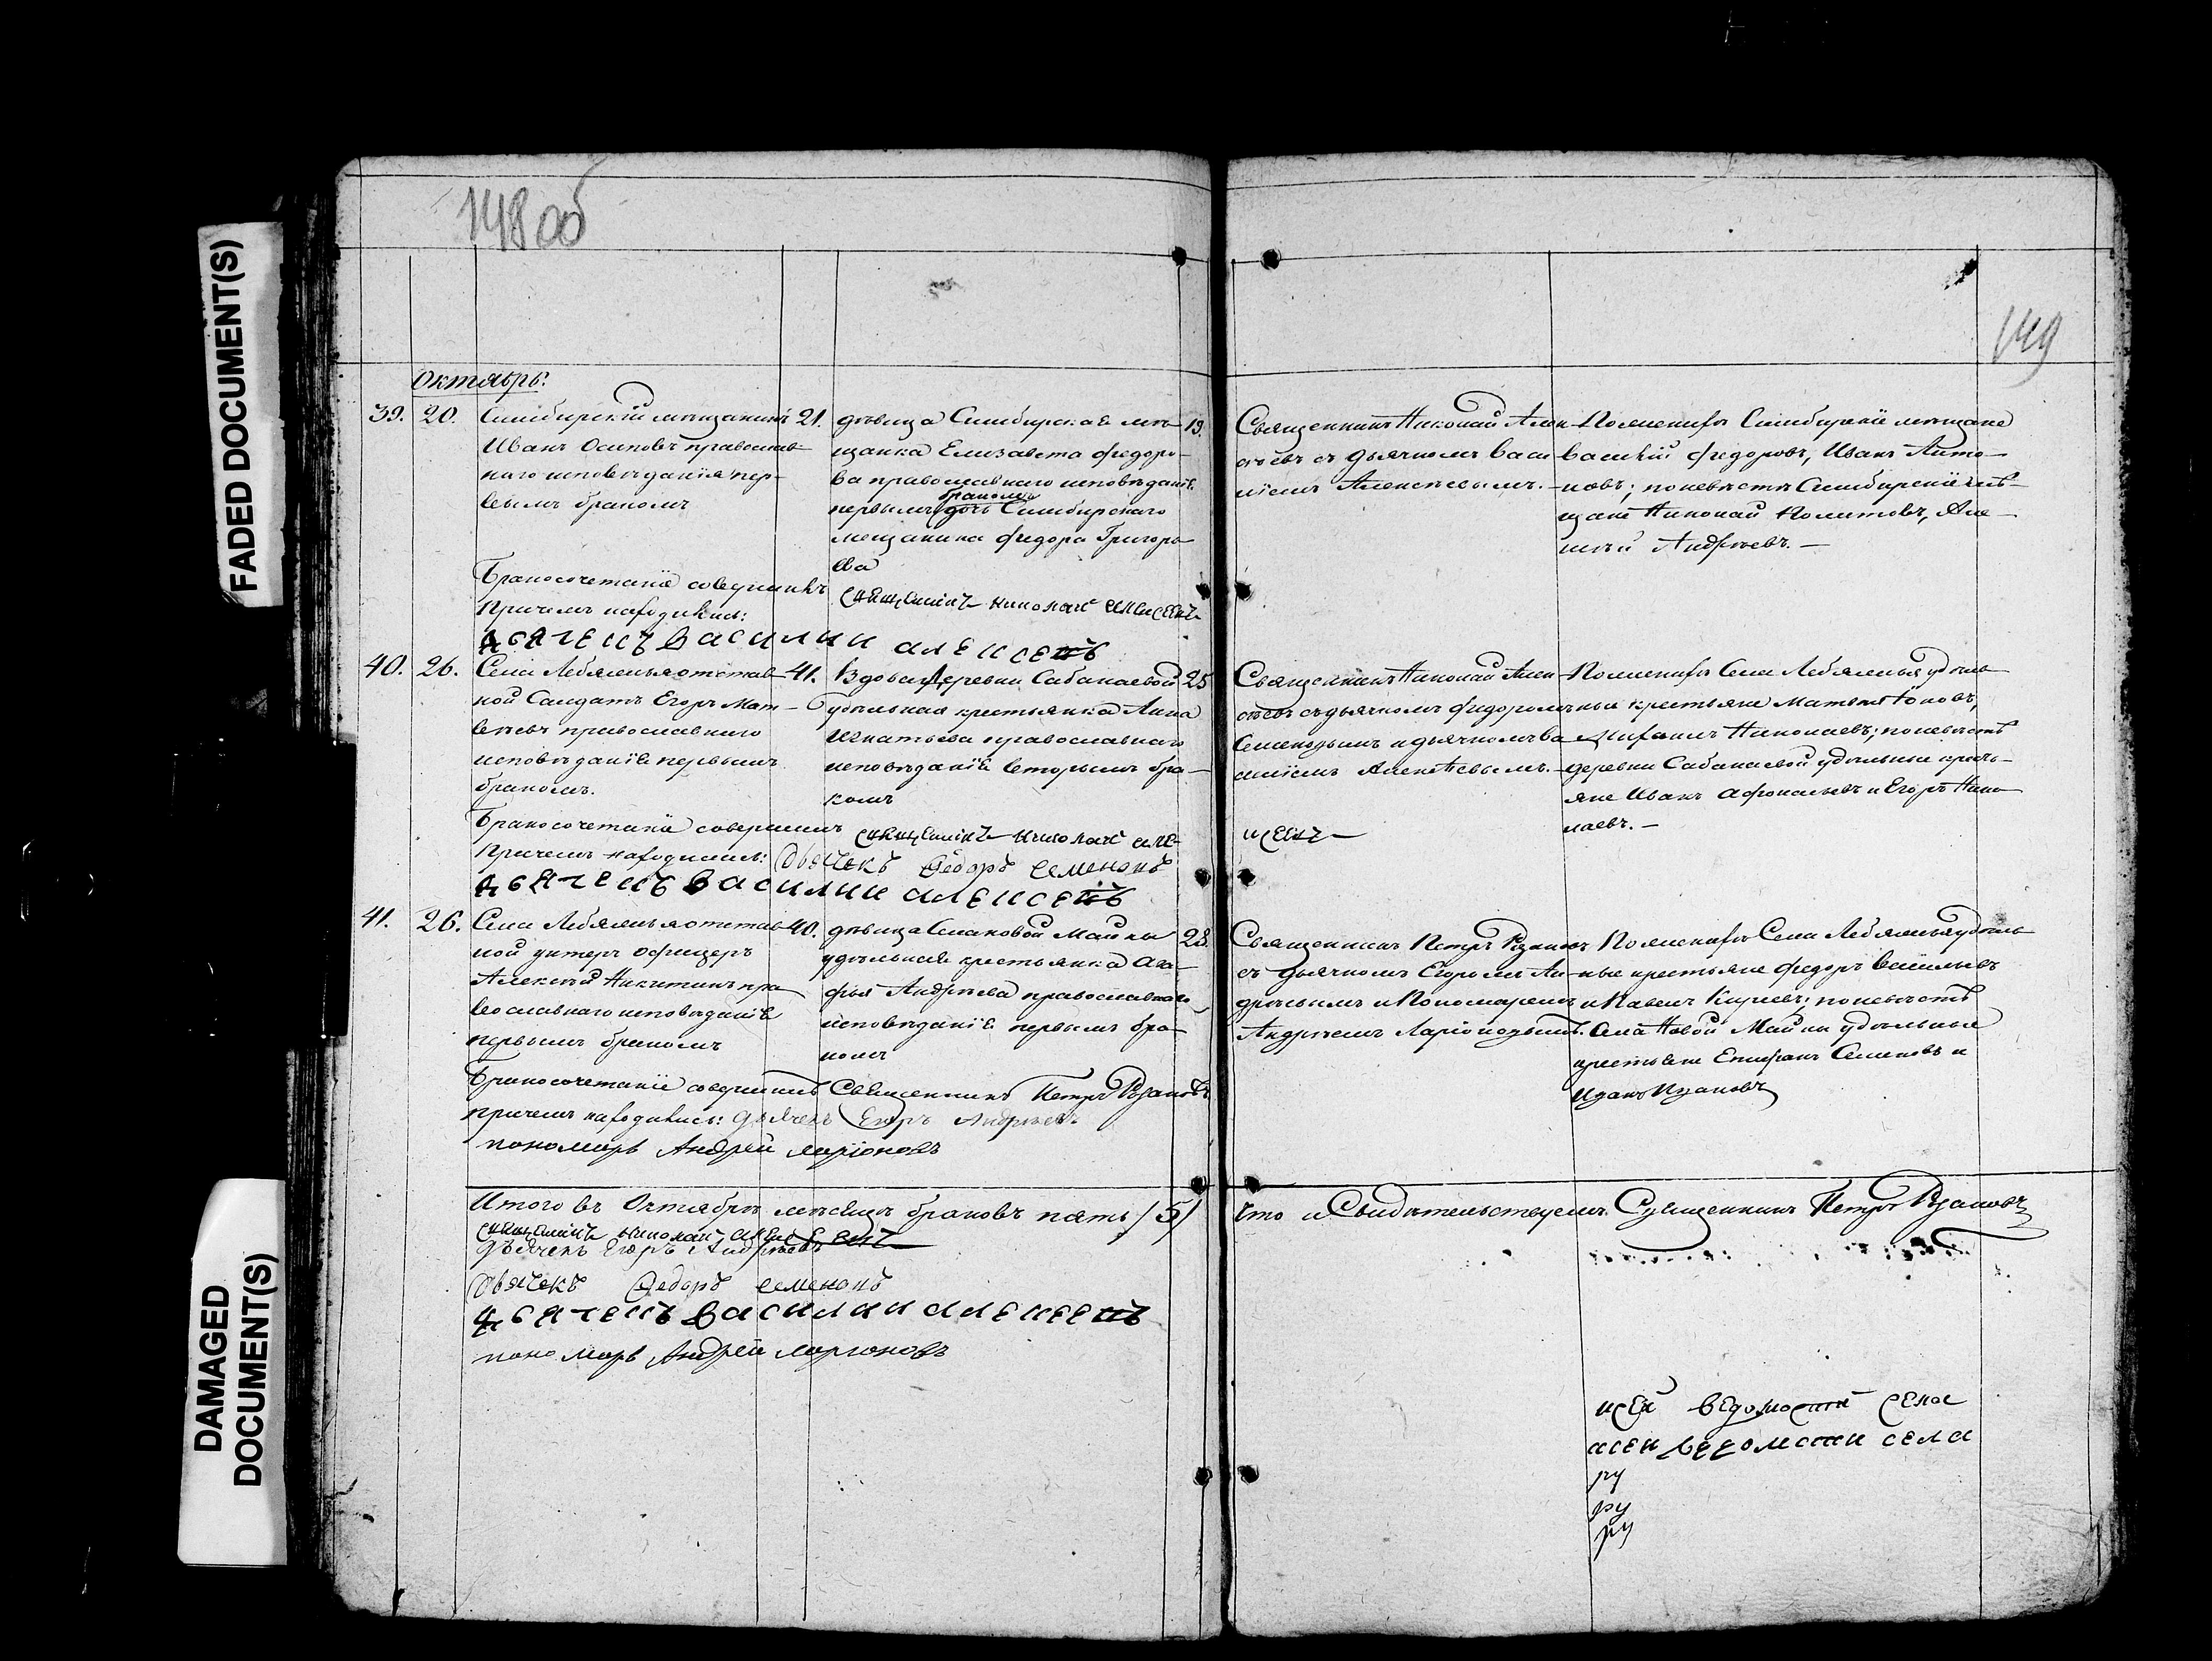 FADED DOCUMENT(S)
DAMAGED DOCUMENT(S)
148 об
149
Октябрь.
39. 20. Симбирскій мѣщанинъ 21.
Иванъ Осиповъ православ-
наго исповѣданія пер-
вымъ бракомъ
дѣвица Симбирская мѣ- 19.
щанка Елизавета Федоро-
ва православнаго исповѣданія
бракомъ
первымъ дочь Симбирскаго
мещанина Федора Григорь
ева
Священникъ Николай Алек
сѣевъ съ дьячкомъ Васи
ліемъ Алексѣевымъ. —
По женихѣ Симбирскіе мѣщане
Василій Федоровъ, Иванъ Анто-
новъ; по невѣстѣ Симбирскіе мѣ-
щане Николай Але-
ксѣй Андрѣевъ. —
Бракосочетаніе совершилъ
священникъ николай алексеевъ
Причемъ находились:
дьячекъ василии алексеевъ
40. 26. Села Лебяжья отстав- 41.
ной Салдатъ Егоръ Мат-
вѣевъ православнаго
исповѣданія первымъ
бракомъ.
Вдова Деревни Сабакаевой 25
удѣльная крестьянка Анна
Игнатьева православнаго
исповѣданія вторымъ бра-
комъ
Священникъ Николай Алек
сѣевъ съ дьячкомъ Федоромъ
Семеновымъ и дьячкомъ Ва
силіемъ Алексѣевымъ. —
По женихѣ Села Лебяжья удѣль
ные крестьяне Матвѣй
Николаевъ; по невѣстѣ
деревни Сабакаевой удѣльные кресть-
яне Иванъ Афонасьевъ и Егоръ Нико
лаевъ. —
Бракосочетаніе совершилъ
священникъ николай алек
сеевъ
Причемъ находились: дьячекъ Федоръ Семеновъ
дьячекъ василии алексеевъ
41. 26. Села Лебяжья отстав 40.
ной унтеръ офицеръ
Алексѣй Никитинъ пра
вославнаго исповѣданія
первымъ бракомъ
дѣвица Майны 28.
удѣльная крестьянка Ага-
фья Андрѣева православнаго
исповѣданія первымъ бра-
комъ
Священникъ Петръ Рузановъ
съ дьячкомъ Егоромъ Ан-
дрѣевымъ и Пономаремъ
Андрѣемъ Ларіоновымъ.
По женихѣ Села Лебяжья удѣль
ные крестьяне Федоръ Васильевъ
и Павелъ по невѣстѣ
села Новой Майны удѣльные
крестьяне Епифанъ Семеновъ и
Иванъ Ивановъ
Бракосочетаніе совершилъ Священникъ Петръ Рузановъ
причемъ находились: дьячекъ Егоръ Андрѣевъ
пономарь Андрей Ларіоновъ
Итого въ Октябрѣ мѣсяцѣ браковъ пять /5/
что и Свидѣтельствуемъ Священникъ Петръ Рузановъ
священникъ николай алексеевъ
дьячекъ Егоръ Андрѣевъ
дьячекъ Федоръ Семеновъ
дьячекъ василии алексеевъ
пономарь Андрей Ларіоновъ
къ сей ведомости села
ксеи ведомасти села
ру
ру
ру